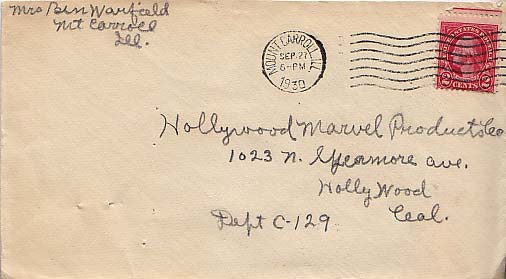 Mrs Ben Warfield
Mt Carroll
Ill.
MOUNT CARROLL, ILL.
SEP 27
6-PM
1930
UNITED STATES POSTAGE
2 CENTS 2
Hollywood Marvel Products Co
1023 N. Sycamore ave.
HollyWood
Cal.
Dept C-129